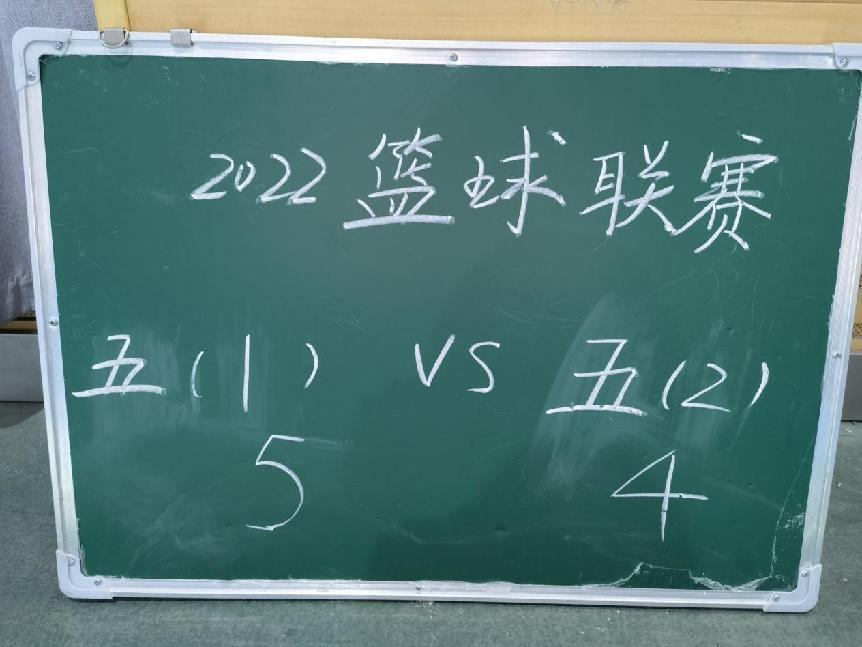 2022 篮球联赛
五(1) VS 五(2)
5 4